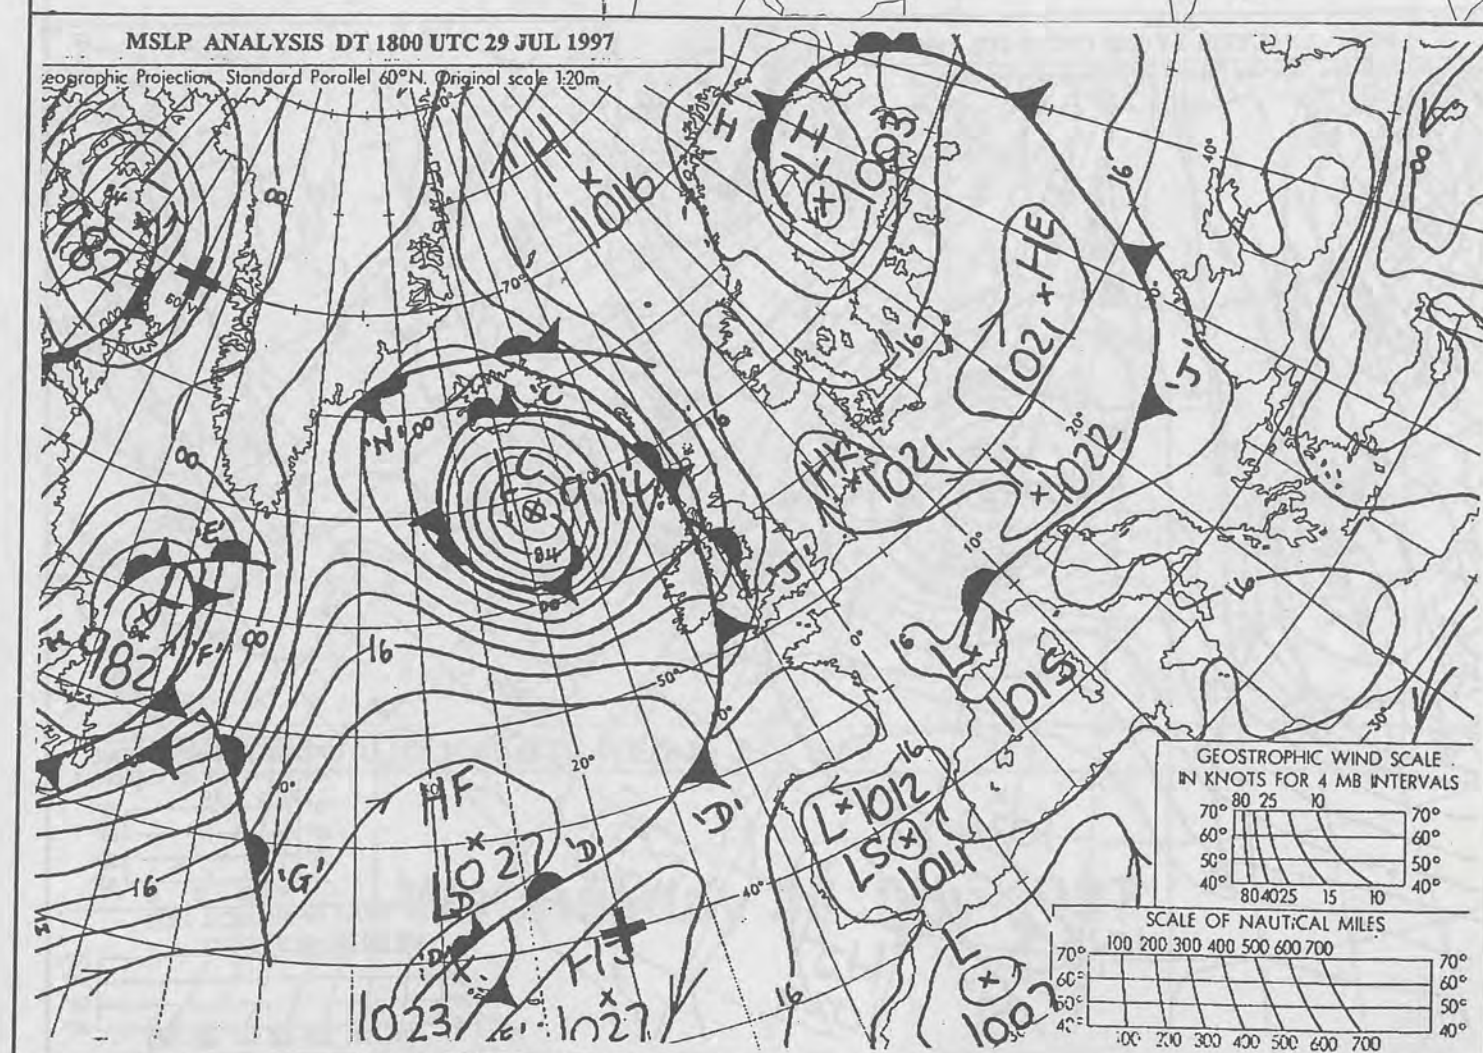 MSLP ANALYSIS DT 1800 UTC 29 JUL 1997
eographic Projection, Standard Parallel 60°N. Original scale 1:20m
H
1016
1003
16
40°
00
HE
1021
70°
16
'J'
'N'
00
'C'
16
HK
1021
H
1022
20°
LC
974
84
00
'E'
982
'F'
00
16
50°
0°
10°
0°
16
L
1015
16
30°
HF
1027
20°
'D'
'D'
'G'
16
LD
1023
HJ
1027
40°
16
L 1012
LS
1011
16
L
1002
GEOSTROPHIC WIND SCALE
IN KNOTS FOR 4 MB INTERVALS
80 25 10
70° 70°
60° 60°
50° 50°
40° 40°
80 40 25 15 10
SCALE OF NAUTICAL MILES
100 200 300 400 500 600 700
70° 70°
60° 60°
50° 50°
40° 40°
100 200 300 400 500 600 700